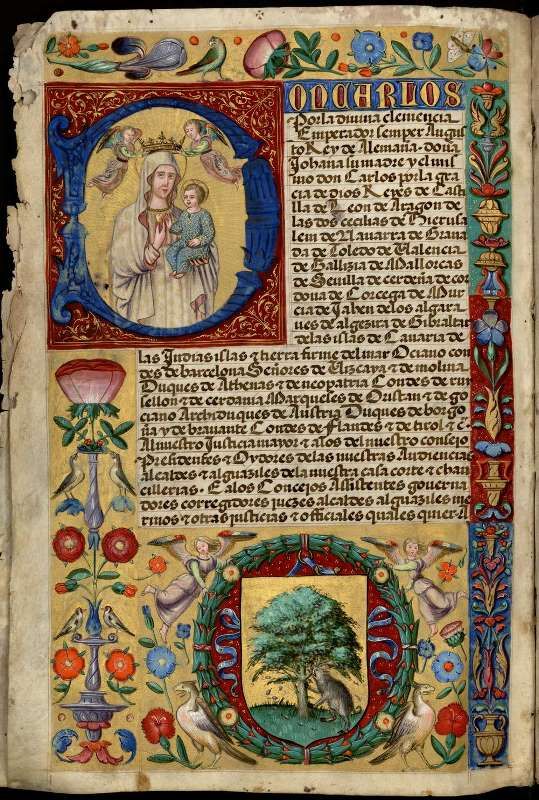 DON CARLOS
Por la divina clemencia
Emperador semper Augus
to Rey de Alemaña · doña
Johana su madre y el mis
mo don Carlos por la gra
cia de dios Reyes de Casti
lla de Leon de Aragon de
las dos cecilias de Hierusa
lem de Navarra de Grana
da de Toledo de Valencia
de Gallizia de Mallorcas
de Sevilla de cerdeña de cor
dova de Corcega de Mur
cia de Jahen de los algar
ves de algezira de Gibraltar
de las islas de Canaria de
las Indias islas & tierra firme del mar Oceano con
des de barcelona Señores de Vizcaya & de molina
Duques de Athenas & de neopatria Condes de ruy
sellon & de cerdania Marqueses de Oristan & de go
ciano Archiduques de Austria Duques de borgo
ña y de bravante Condes de Flandes & de tirol & c.
Al nuestro Justicia mayor & a los del nuestro consejo
Presidentes & Oydores de las nuestras Audiencias
alcaldes & alguaziles de la nuestra casa corte & chan
cillerias · E a los Concejos Assistentes governa
dores corregidores juezes alcaldes alguaziles me
rinos & otras justicias & officiales quales quier · A